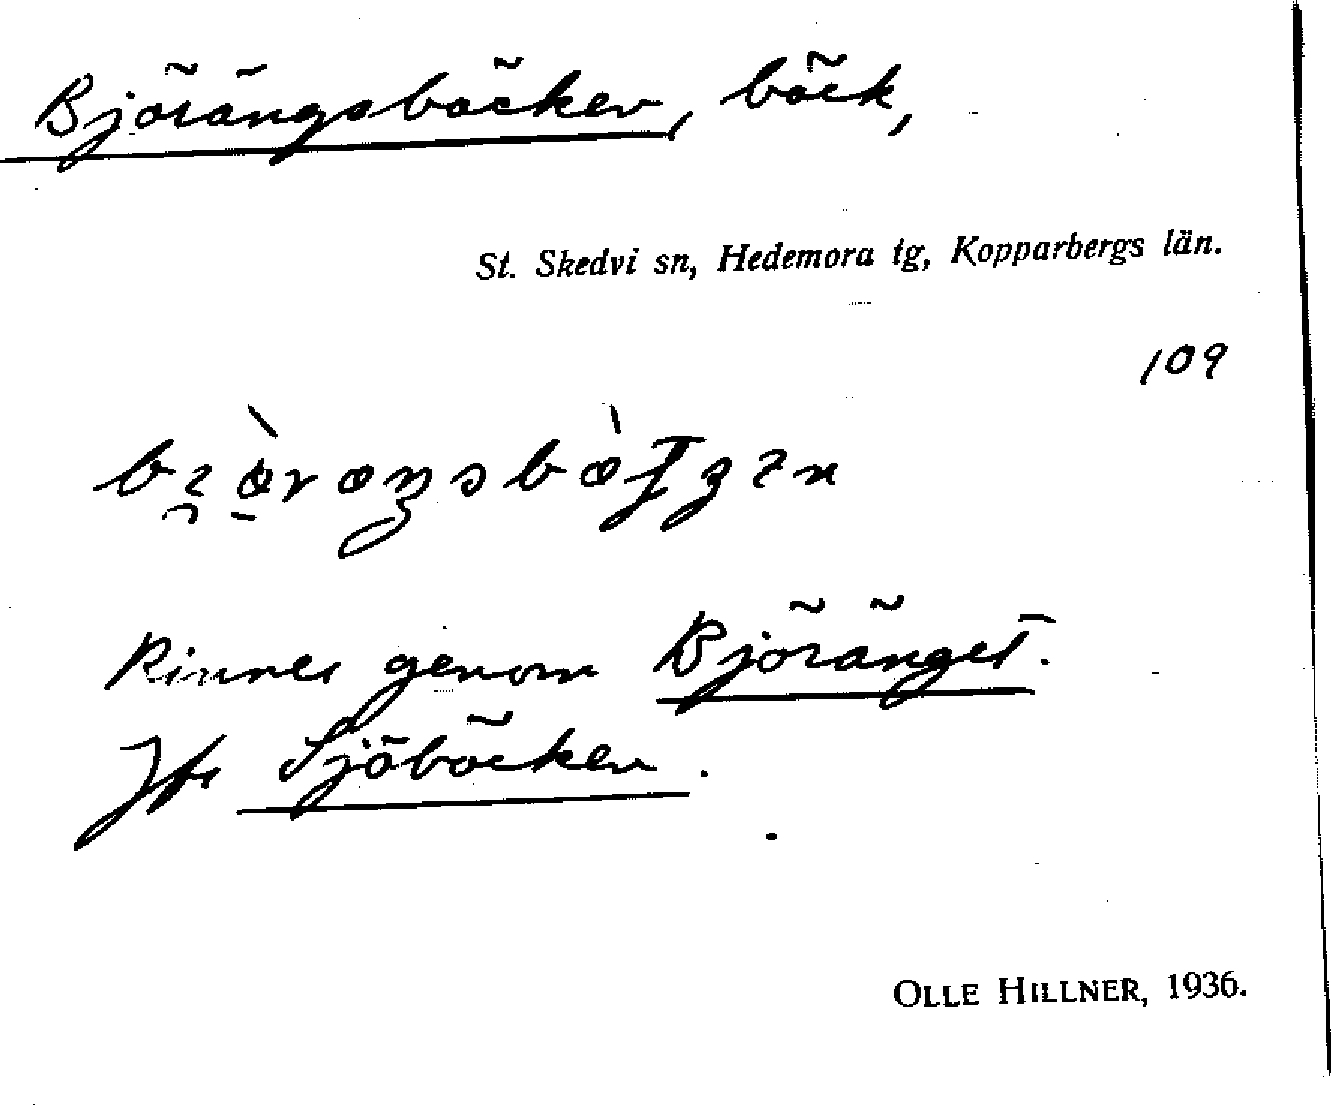 Björängsbäcken, bäck,
St. Skedvi sn, Hedemora tg, Kopparbergs län.
109
Rinner genom Björänget.
Jfr Sjöbäcken.
OLLE HILLNER, 1936.